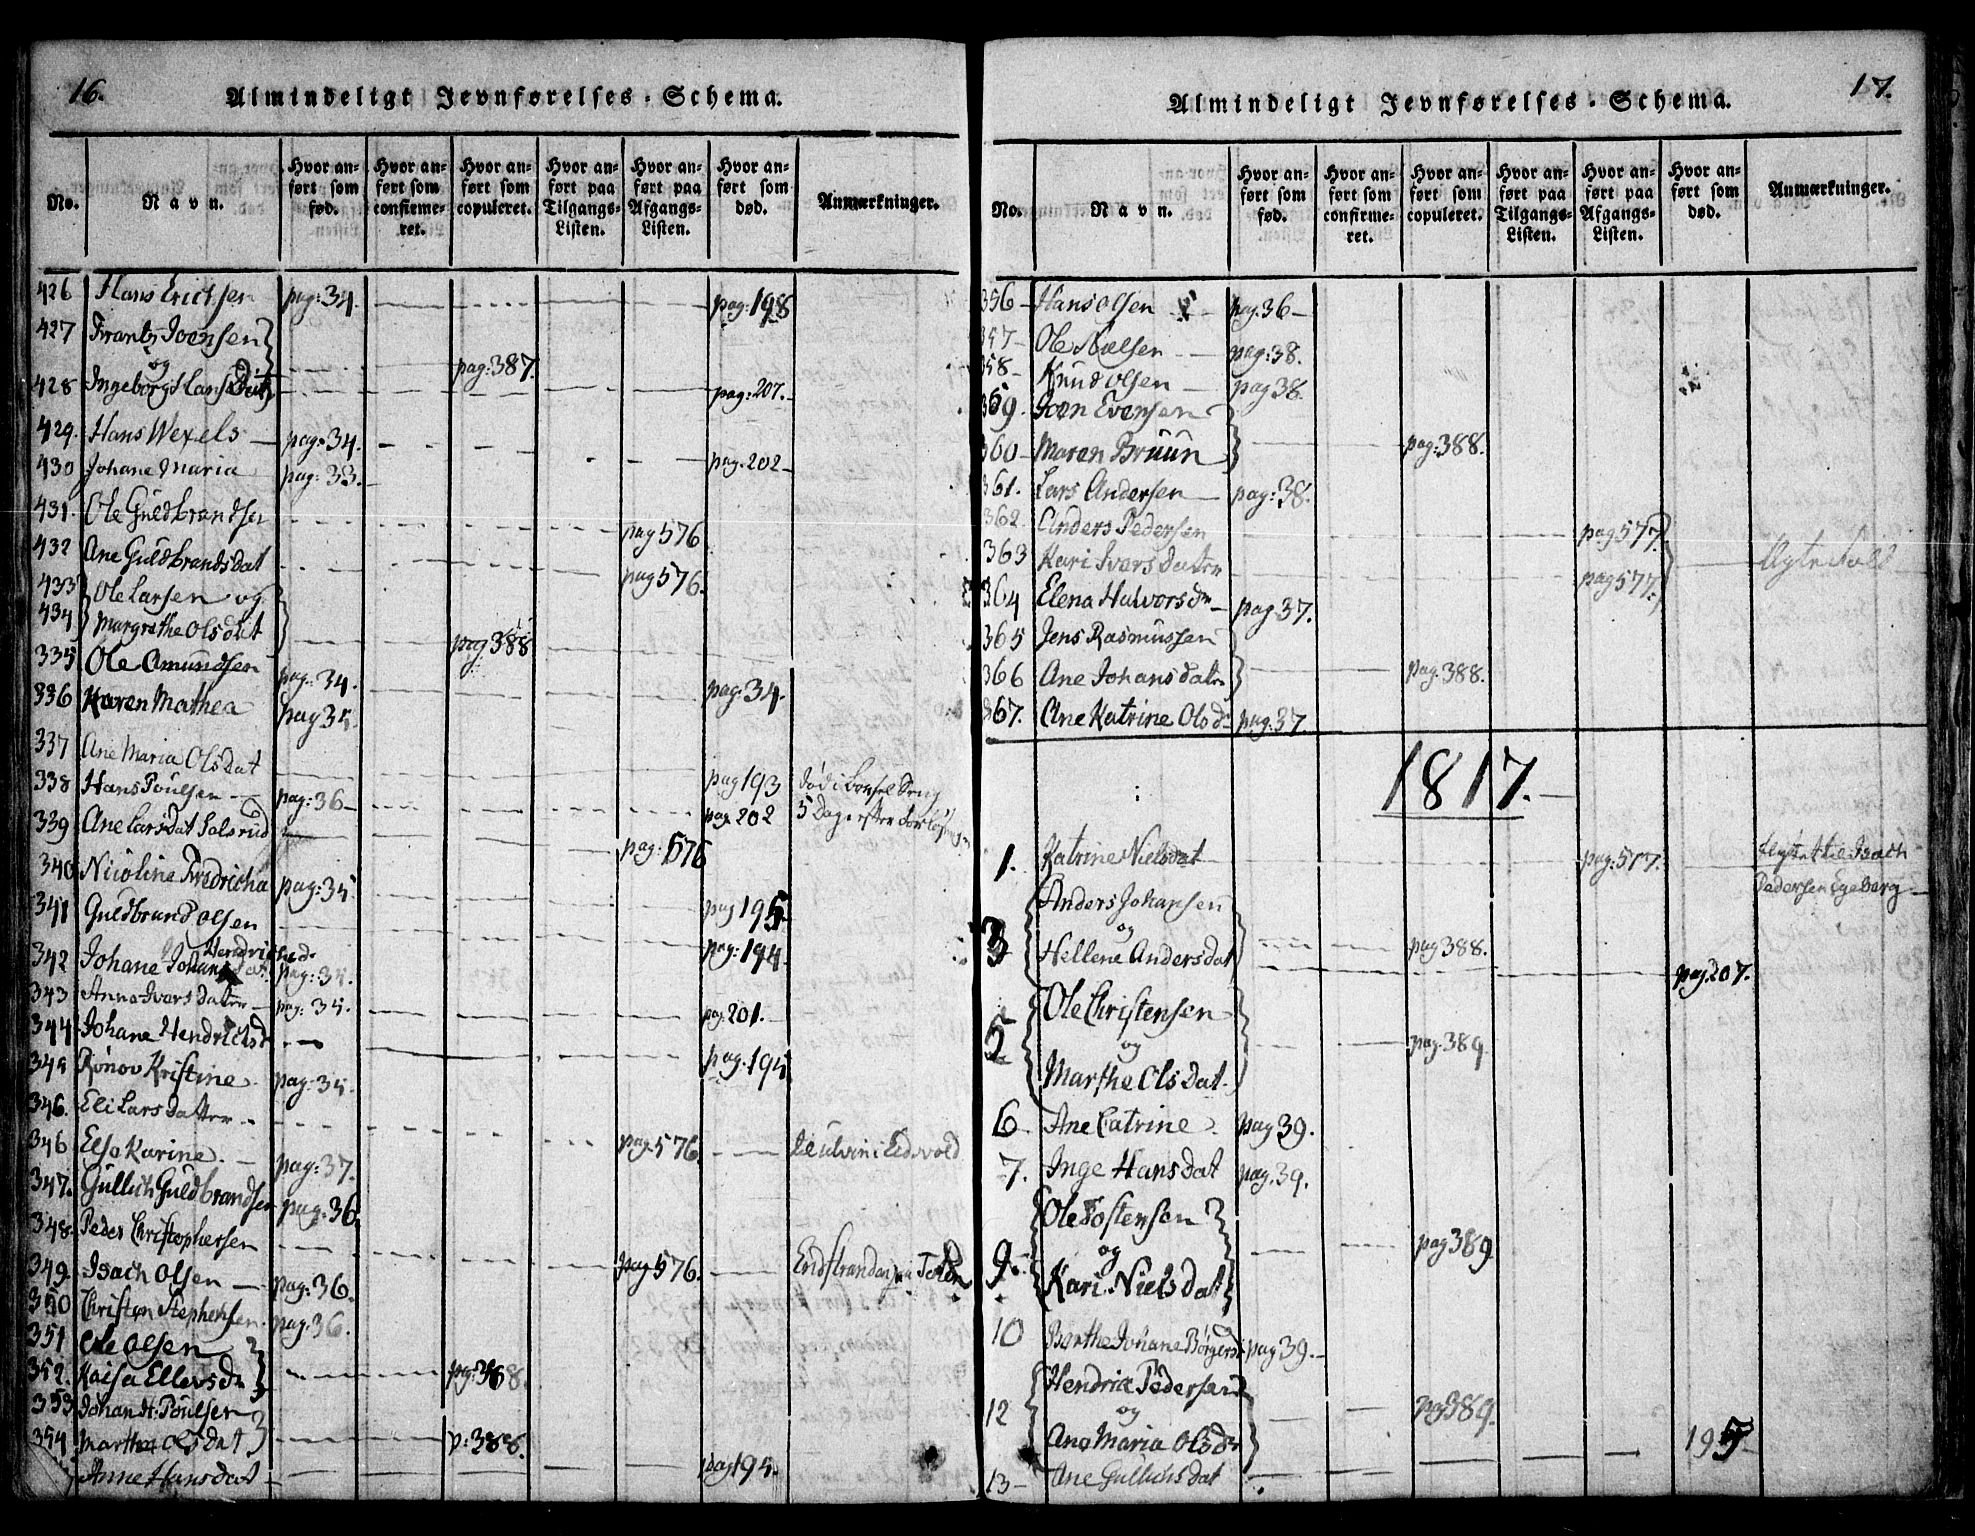 16.
Almindeligt Jevnførelses-Schema.
No.
Navn.
Hvor anført som fød.
Hvor anført som confirmeret.
Hvor anført som copuleret.
Hvor anført paa Tilgangs-Listen.
Hvor anført paa Afgangs-Listen.
Hvor anført som død.
Anmærkninger.
426 Hans Erichsen pag: 34. pag: 198
427 Frantz Joensen
og pag: 387.
428 Ingeborg Larsdat pag: 207.
429. Hans Wexels pag: 34.
430 Johane Maria pag: 33. pag. 202
431. Ole Guldbrandsen pag 576
432 Ane Guldbrandsdat pag 576.
433 Ole Larsen og
434 Margrethe Olsdat pag 388
335 Ole Amundsen pag: 34. pag: 34.
336 Karen Mathea pag 35.
337 Ane Maria Olsdat pag 193
338 Hans Poulsen pag: 36 pag 202 5 Dag efter
339 Ane Larsdat Solsrud pag: 576
340 Nicoline Fredricha pag: 35
341 Guldbrand Olsen pag 195
342 Johane Hendrichsd. pag: 35. pag: 194
343 Anna Ivers datter pag: 35. pag. 201.
344 Johane Hendrichsd pag. 195
345 Rønov Kristine pag: 35.
346. Eli Lars datter pag. 576. i Eidsvold
346 Else Karine. pag: 37.
347. Gullich Guldbrandsen pag: 36
348. Peder Christophersen pag 576. paa Toten
349. Isach Olsen pag: 36.
350 Christen Stephensen pag: 36.
351 Ole Olsen
352. Kaisa Ellevsdr pag: 388.
353 Johan H: Poulsen
354 Marthe Olsdat p: 388.
Anne Hansdat pag 195.
17.
Almindeligt Jevnførelses-Schema.
No.
Navn.
Hvor anført som fød.
Hvor anført som confirmeret.
Hvor anført som copuleret.
Hvor anført paa Tilgangs-Listen.
Hvor anført paa Afgangs-Listen.
Hvor anført som død.
Anmærkninger.
356 Hans Olsen pag. 36
357 Ole Nielsen pag: 38.
358 Knud Olsen pag 38.
359. Joen Evensen
360 Maren Bruun pag: 388.
361. Lars Andersen pag: 38.
362. Anders Pedersen pag 577.
363 Kari Ivers datter pag 577.
364 Elena Halvorsdr pag 37.
365 Jens Rasmussen
366 Ane Johans datter pag. 388.
367. Ane Katrine Olsdr pag. 37.
1817.
1. Katrine Nielsdat pag: 577. Isach
Pedersen Egeberg
Anders Johansen
3 og pag 388.
Hellene Andersdat pag. 207.
Ole Christensen
5 og pag. 389.
Marthe Olsdat.
6 Ane Catrine pag 39.
7. Inge Hansdat pag. 39.
Ole Tostensen
9. og pag 389.
Kari Nielsdat
10 Berthe Johane Børgersd pag 39.
Hendric Pedersen
12 og pag 389.
Ane Maria Olsdr 195
13 Ane Gullichsdat